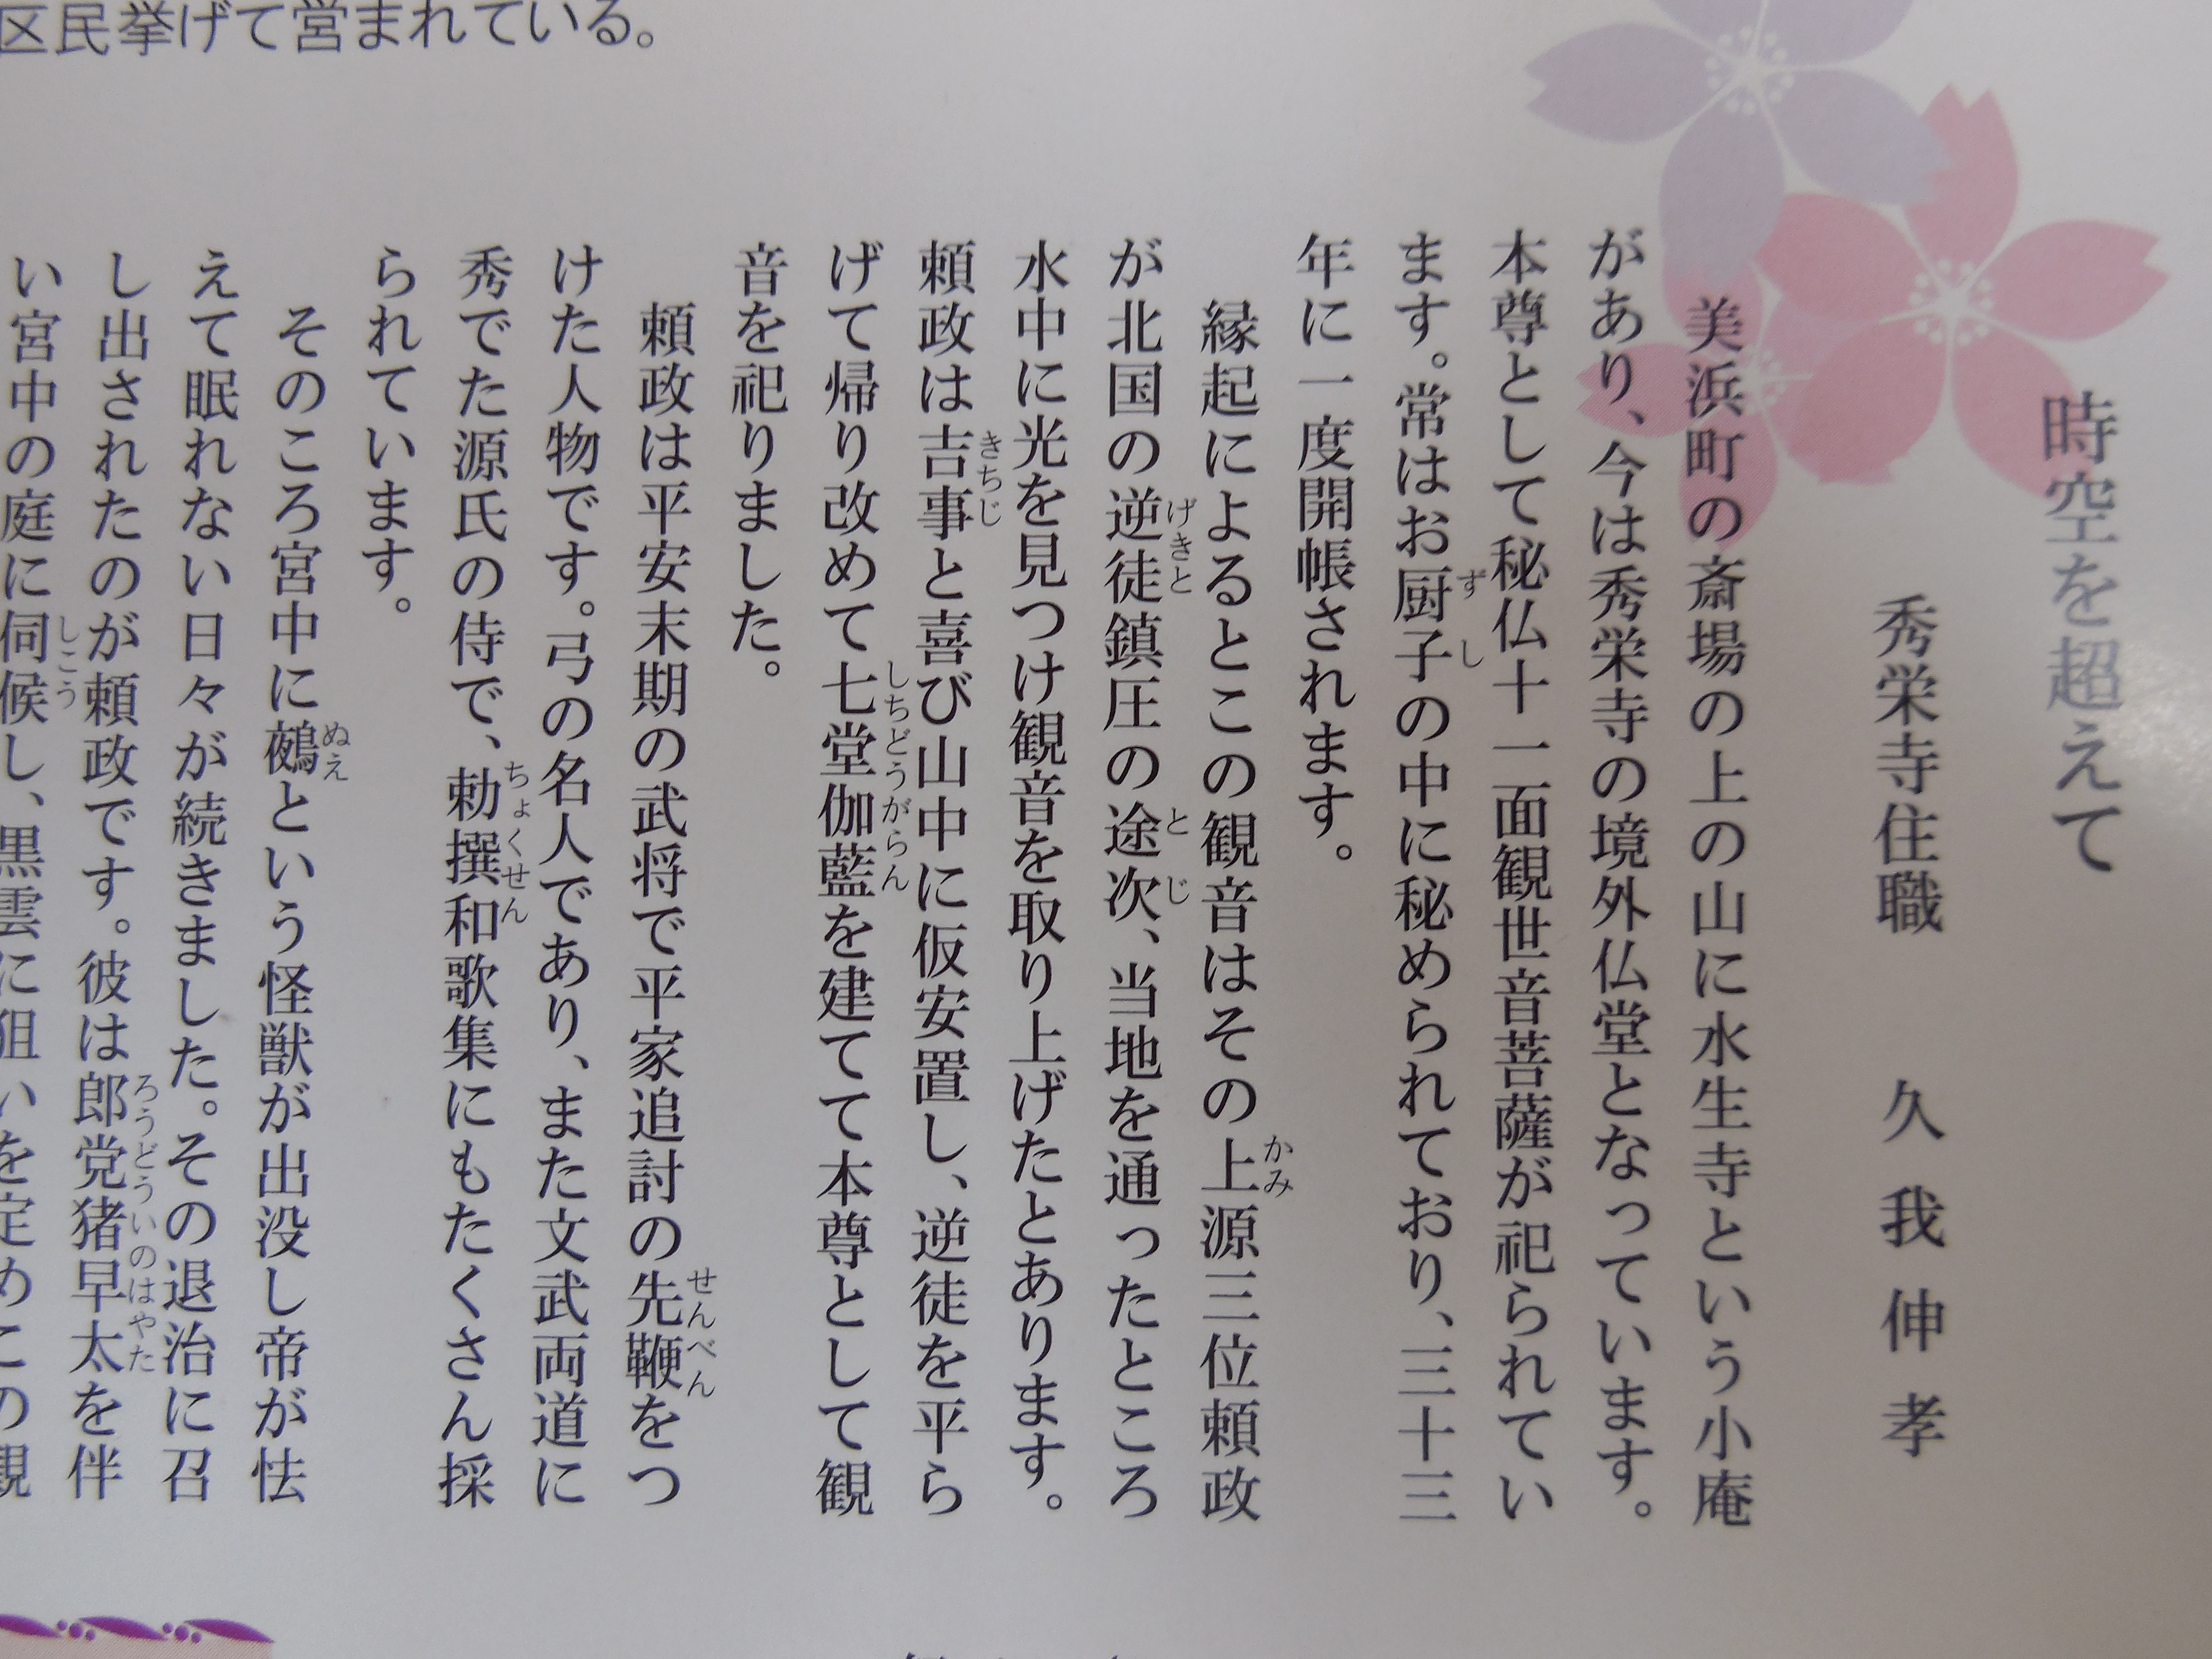 区民挙げて営まれている。
時空を超えて
秀栄寺住職　久我伸孝
美浜町の斎場の上の山に水生寺という小庵
があり、今は秀栄寺の境外仏堂となっています。
本尊として秘仏十一面観世音菩薩が祀られてい
ます。常はお厨子の中に秘められており、三十三
ずし
年に一度開帳されます。
縁起によるとこの観音はその上源三位頼政
かみ
が北国の逆徒鎮圧の途次、当地を通ったところ
げきと
とじ
水中に光を見つけ観音を取り上げたとあります。
頼政は吉事と喜び山中に仮安置し、逆徒を平ら
きちじ
げて帰り改めて七堂伽藍を建てて本尊として観
しちどうがらん
音を祀りました。
頼政は平安末期の武将で平家追討の先鞭をつ
せんべん
けた人物です。弓の名人であり、また文武両道に
秀でた源氏の侍で、勅撰和歌集にもたくさん採
ちょくせん
られています。
そのころ宮中に鵺という怪獣が出没し帝が怯
ぬえ
えて眠れない日々が続きました。その退治に召
し出されたのが頼政です。彼は郎党猪早太を伴
ろうどういのはやた
い宮中の庭に伺候し、黒雲に狙いを定めこの観
しこう